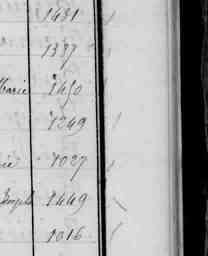 1431
1337
Marie 1450
1249
ie 1027
1449
1016